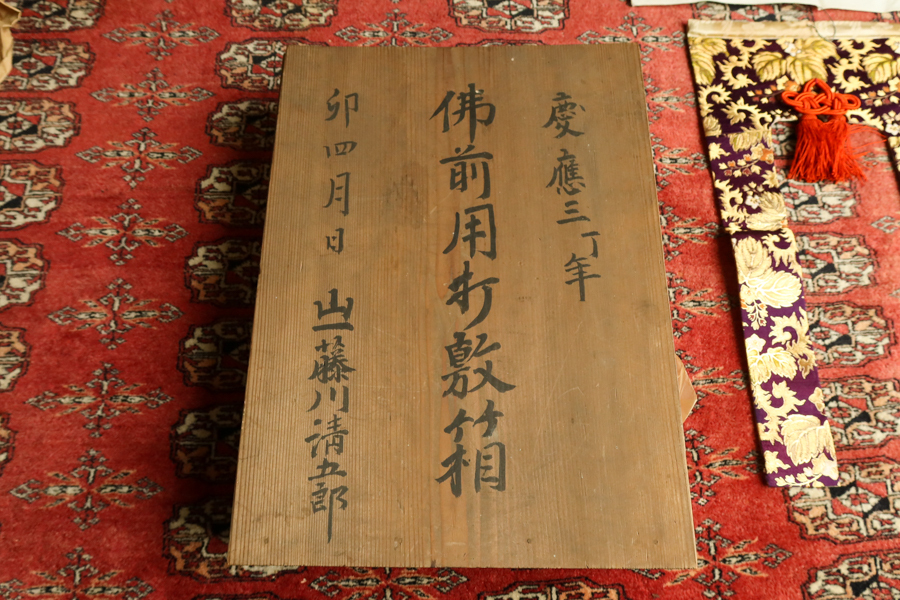 慶應三丁年
佛前用打敷箱
卯四月日 山一藤川清五郎